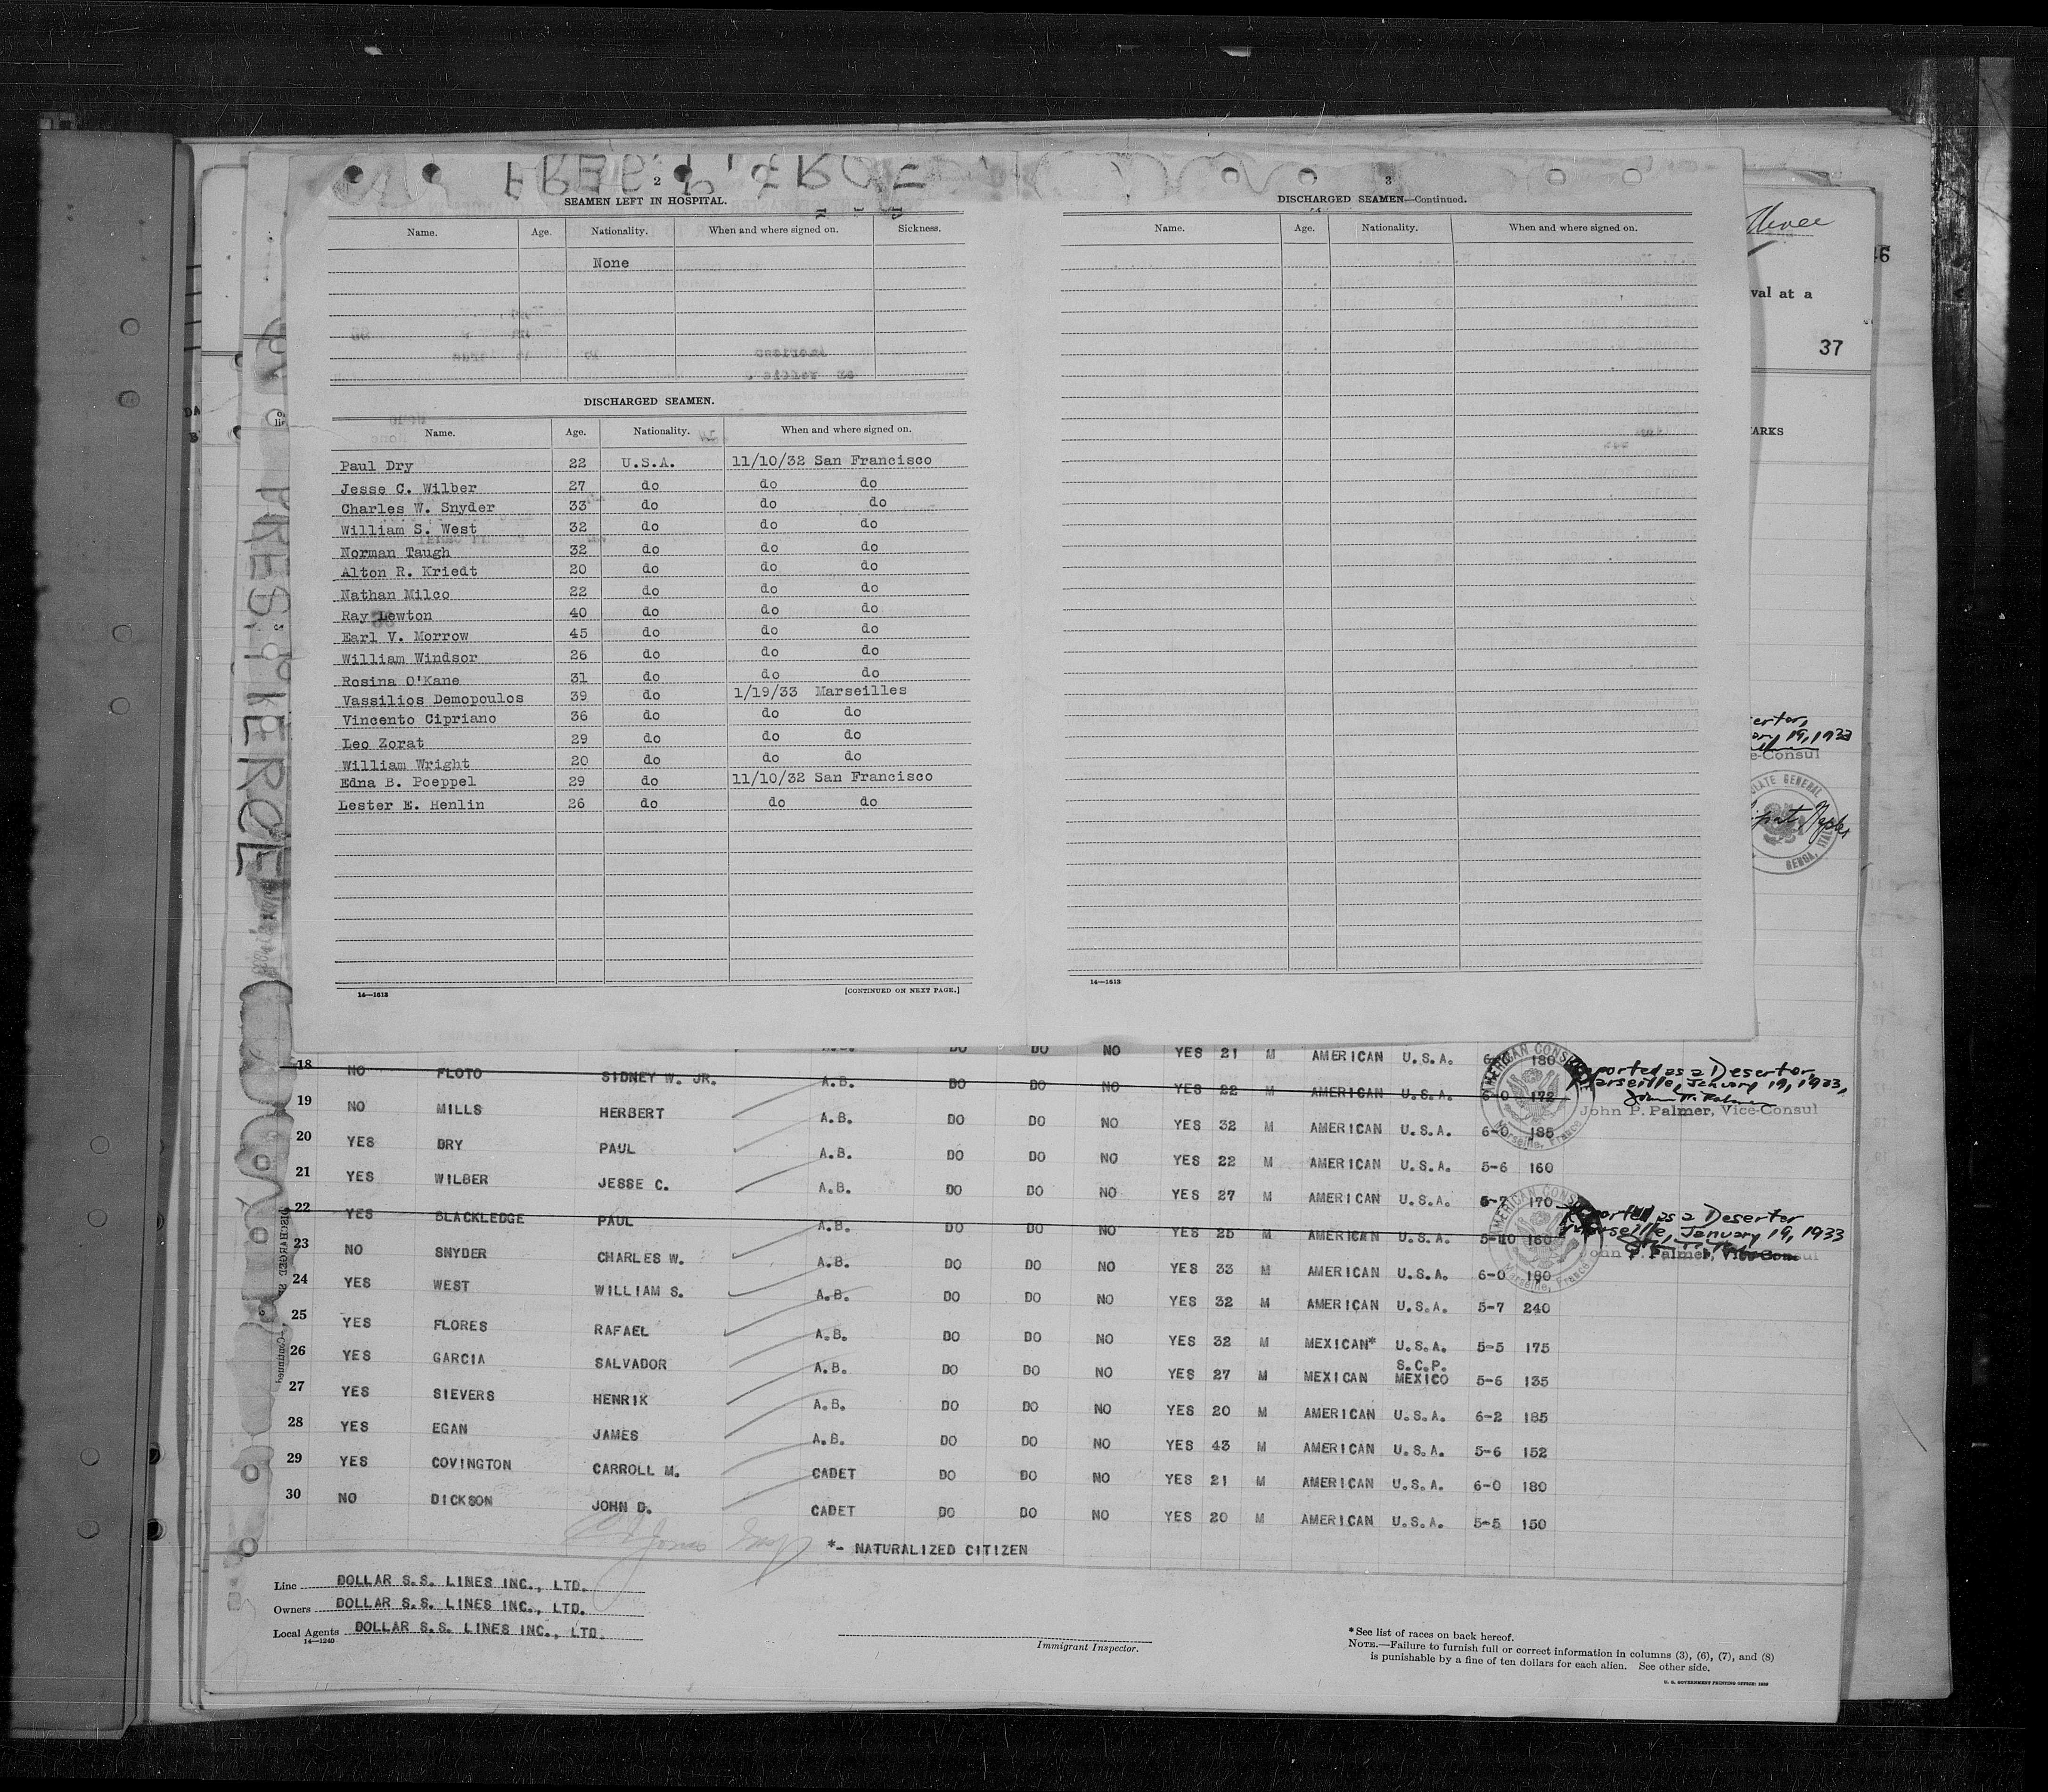 2
SEAMEN LEFT IN HOSPITAL.
Name. Age. Nationality. When and where signed on. Sickness.
None
DISCHARGED SEAMEN.
Name. Age. Nationality. When and where signed on.
Paul Dry 22 U.S.A. 11/10/32 San Francisco
Jesse C. Wilber 27 do do do
Charles W. Snyder 33 do do do
William S. West 32 do do do
Norman Taugh 32 do do do
Alton R. Kriedt 20 do do do
Nathan Milco 22 do do do
Ray Lewton 40 do do do
Earl V. Morrow 45 do do do
William Windsor 26 do do do
Rosina O'Kane 31 do do do
Vassilios Demopoulos 39 do 1/19/33 Marseilles
Vincento Cipriano 36 do do do
Leo Zorat 29 do do do
William Wright 20 do do do
Edna B. Poeppel 29 do 11/10/32 San Francisco
Lester E. Henlin 26 do do do
14—1613 [CONTINUED ON NEXT PAGE.]
3
DISCHARGED SEAMEN—Continued.
Name. Age. Nationality. When and where signed on.
14—1613
46
val at a
37
ARKS
19, 1933
PRES. PIERCE
A.B. DO DO NO YES 21 M AMERICAN U.S.A. 180
18 NO FLOTO SIDNEY W. JR. A.B. DO DO NO YES 22 M AMERICAN U.S.A. 6-0 172
Reported as a Desertor
Marseille, January 19, 1933,
John P. Palmer, Vice-Consul
19 NO MILLS HERBERT A.B. DO DO NO YES 32 M AMERICAN U.S.A. 6-0 185
20 YES DRY PAUL A.B. DO DO NO YES 22 M AMERICAN U.S.A. 5-6 160
21 YES WILBER JESSE C. A.B. DO DO NO YES 27 M AMERICAN U.S.A. 5-7 170
22 YES BLACKLEDGE PAUL A.B. DO DO NO YES 25 M AMERICAN U.S.A. 5-10 160
Reported as a Desertor
Marseille, January 19, 1933
John P. Palmer, Vice-Consul
23 NO SNYDER CHARLES W. A.B. DO DO NO YES 33 M AMERICAN U.S.A. 6-0 180
24 YES WEST WILLIAM S. A.B. DO DO NO YES 32 M AMERICAN U.S.A. 5-7 240
25 YES FLORES RAFAEL A.B. DO DO NO YES 32 M MEXICAN* U.S.A. 5-5 175
26 YES GARCIA SALVADOR A.B. DO DO NO YES 27 M MEXICAN S.C.P. MEXICO 5-6 135
27 YES SIEVERS HENRIK A.B. DO DO NO YES 20 M AMERICAN U.S.A. 6-2 185
28 YES EGAN JAMES A.B. DO DO NO YES 43 M AMERICAN U.S.A. 5-6 152
29 YES COVINGTON CARROLL M. CADET DO DO NO YES 21 M AMERICAN U.S.A. 6-0 180
30 NO DICKSON JOHN D. CADET DO DO NO YES 20 M AMERICAN U.S.A. 5-5 150
*- NATURALIZED CITIZEN
Line DOLLAR S.S. LINES INC., LTD.
Owners DOLLAR S.S. LINES INC., LTD.
Local Agents DOLLAR S.S. LINES INC., LTD.
14—1240
Immigrant Inspector.
*See list of races on back hereof.
NOTE.—Failure to furnish full or correct information in columns (3), (6), (7), and (8)
is punishable by a fine of ten dollars for each alien. See other side.
U. S. GOVERNMENT PRINTING OFFICE: